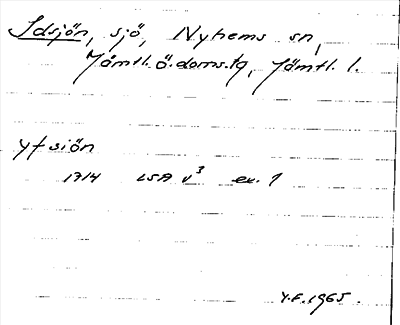 Idsjön, sjö, Nyhems sn,
Jämtl. ö. doms.tg, Jämtl. l.
yfsiön
1714 LSA v³ ex. 1
Y.F. 1965.